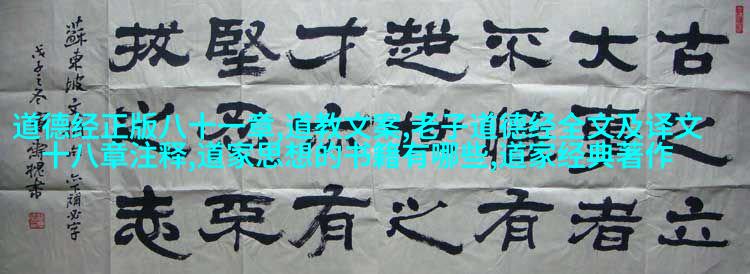 道德经正版八十一章,道教文案,老子道德经全文及译文
十八章注释,道家思想的书籍有哪些,道家经典著作
古之立
大事者
不有
超世之
才有
堅
拔之志
蘇東坡文句
戊子之冬